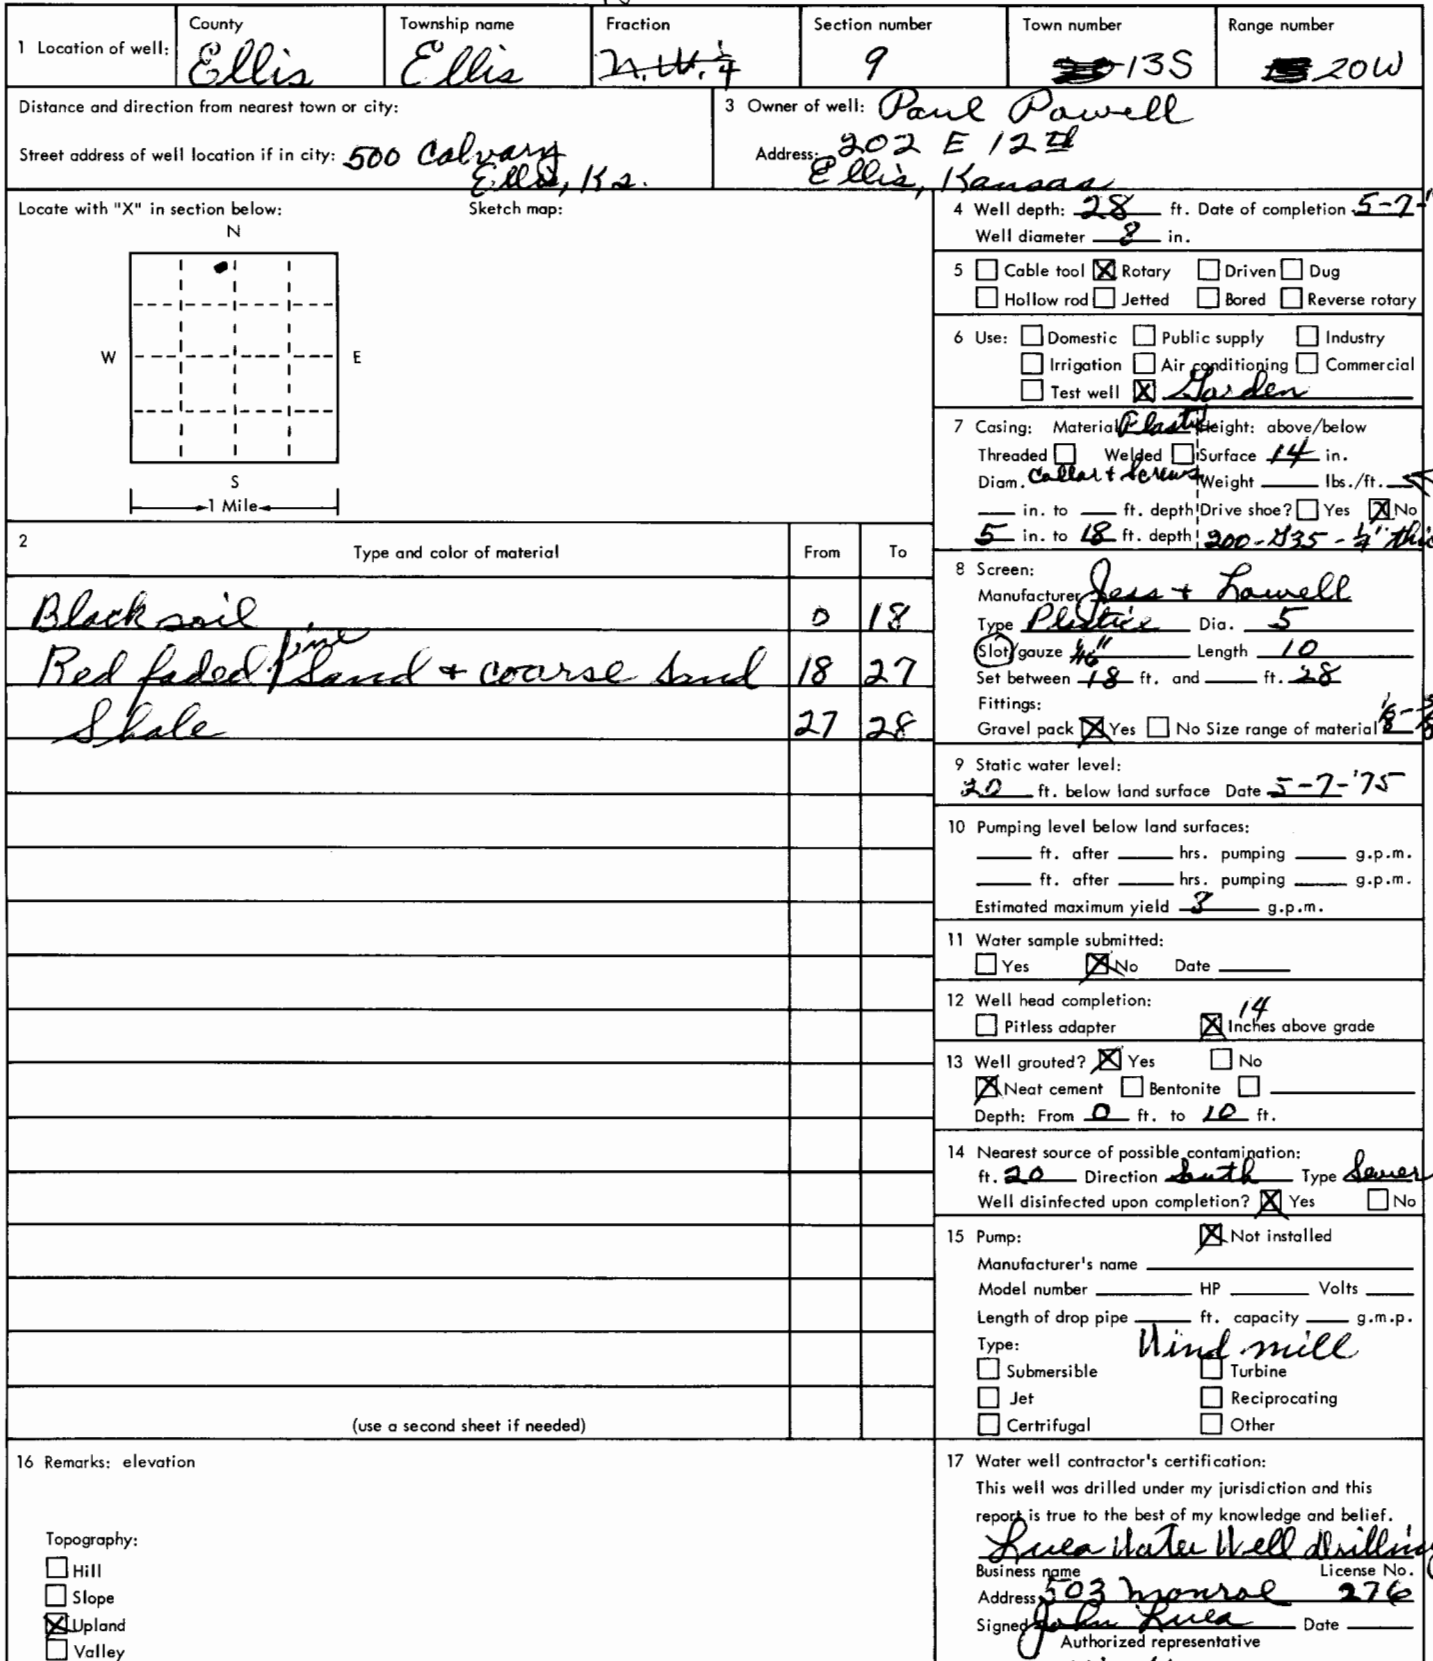 County Township name Fraction Section number Town number Range number
1 Location of well: Ellis Ellis N.W. ¼ 9 13S 20W
Distance and direction from nearest town or city:
Street address of well location if in city: 500 Calvary
Ellis, Ks.
3 Owner of well: Paul Powell
Address: 202 E 12th
Ellis, Kansas
Locate with "X" in section below: Sketch map:
N
W E
S
1 Mile
2 Type and color of material From To
Black soil 0 18
Red faded fine sand + coarse sand 18 27
Shale 27 28
(use a second sheet if needed)
16 Remarks: elevation
Topography:
Hill
Slope
Upland
Valley
4 Well depth: 28 ft. Date of completion 5-7-
Well diameter 8 in.
5 Cable tool Rotary Driven Dug
Hollow rod Jetted Bored Reverse rotary
6 Use: Domestic Public supply Industry
Irrigation Air conditioning Commercial
Test well Garden
7 Casing: Material Plastic Height: above/below
Threaded Welded Surface 14 in.
Diam. Collar + Screws Weight lbs./ft.
in. to ft. depth Drive shoe? Yes No
5 in. to 18 ft. depth 200- - ¼" thic
8 Screen:
Manufacturer Jess + Lowell
Type Plastic Dia. 5
Slot/gauze 1/16" Length 10
Set between 18 ft. and ft. 28
Fittings:
Gravel pack Yes No Size range of material
9 Static water level:
20 ft. below land surface Date 5-7-'75
10 Pumping level below land surfaces:
ft. after hrs. pumping g.p.m.
ft. after hrs. pumping g.p.m.
Estimated maximum yield g.p.m.
11 Water sample submitted:
Yes No Date
12 Well head completion: 14
Pitless adapter Inches above grade
13 Well grouted? Yes No
Neat cement Bentonite
Depth: From 0 ft. to 10 ft.
14 Nearest source of possible contamination:
ft. 20 Direction South Type Sewer
Well disinfected upon completion? Yes No
15 Pump: Not installed
Manufacturer's name
Model number HP Volts
Length of drop pipe ft. capacity g.m.p.
Type: Wind mill
Submersible Turbine
Jet Reciprocating
Certrifugal Other
17 Water well contractor's certification:
This well was drilled under my jurisdiction and this
report is true to the best of my knowledge and belief.
Luea Water Well Drilling
Business name License No.
Address 503 Monroe 276
Signed John Luea Date
Authorized representative